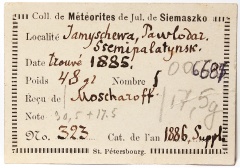 Coll. de Météorites de Jul. de Siemaszko
Localité Jamyschewa, Pawlodar.
Ssemipalatynsk.
Date trouvé 1885.
Poids 48 gr Nombre 1
Reçu de Moscharoff
Note 30,5 + 17.5
17,5g
No. 323 Cat. de l'an 1886, Suppl.
St. Pétersbourg.